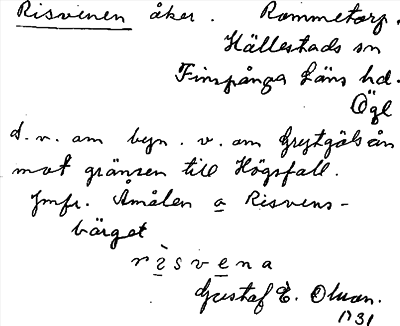 Risvenen åker. Rommetorp.
Hällestads sn
Finspånga läns hd.
Ögl
d. n. om byn. v. om Grytgölsån
mot gränsen till Högsfall.
Jmfr. Åmålen o Risvens-
bärget
rìsvena
Gustaf E. Olsson.
1931